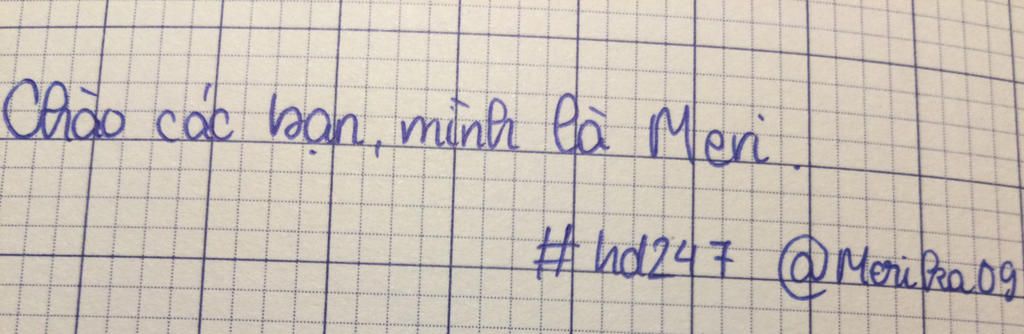 Chào các bạn, mình là Meri.
#hd247 @Merika09